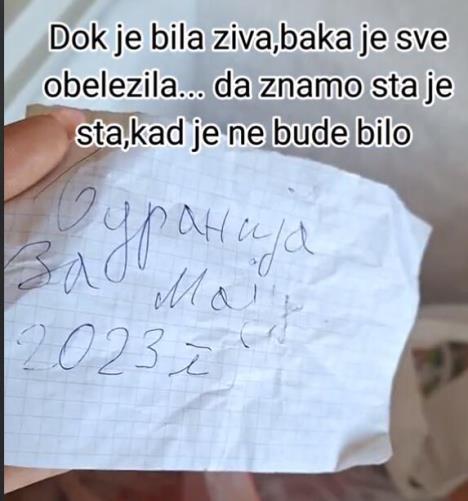 Dok je bila ziva,baka je sve
obelezila... da znamo sta je
sta,kad je ne bude bilo
Буранија
За Мај
2023 г